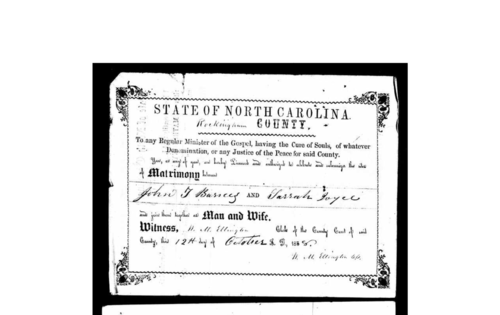 STATE OF NORTH CAROLINA.
Rockingham COUNTY.
To any Regular Minister of the Gospel, having the Cure of Souls, of whatever
Denomination, or any Justice of the Peace for said County.
You, or any of you, are hereby licensed and authorized to celebrate and solemnize the rites
of Matrimony between
John T Barnes AND Sarrah Joyce
and join them together as Man and Wife.
Witness, W. M. Ellington Clerk of the County Court of said
County, this 12th day of October A. D., 185
W. M. Ellington